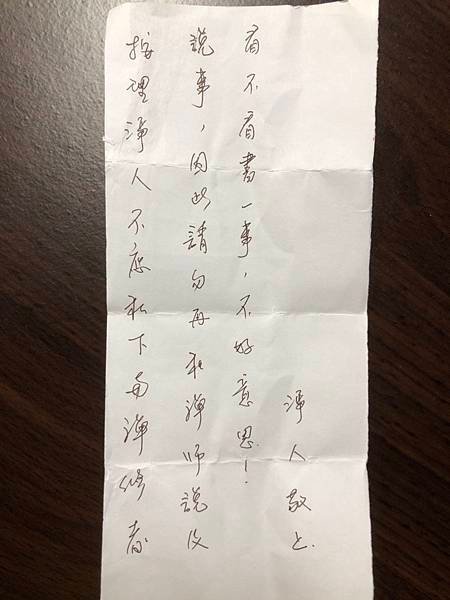 按理淨人不應私下與禪修者
說事，因此請勿再和禪師說及
有不有書一事，不好意思！
淨人敬上.